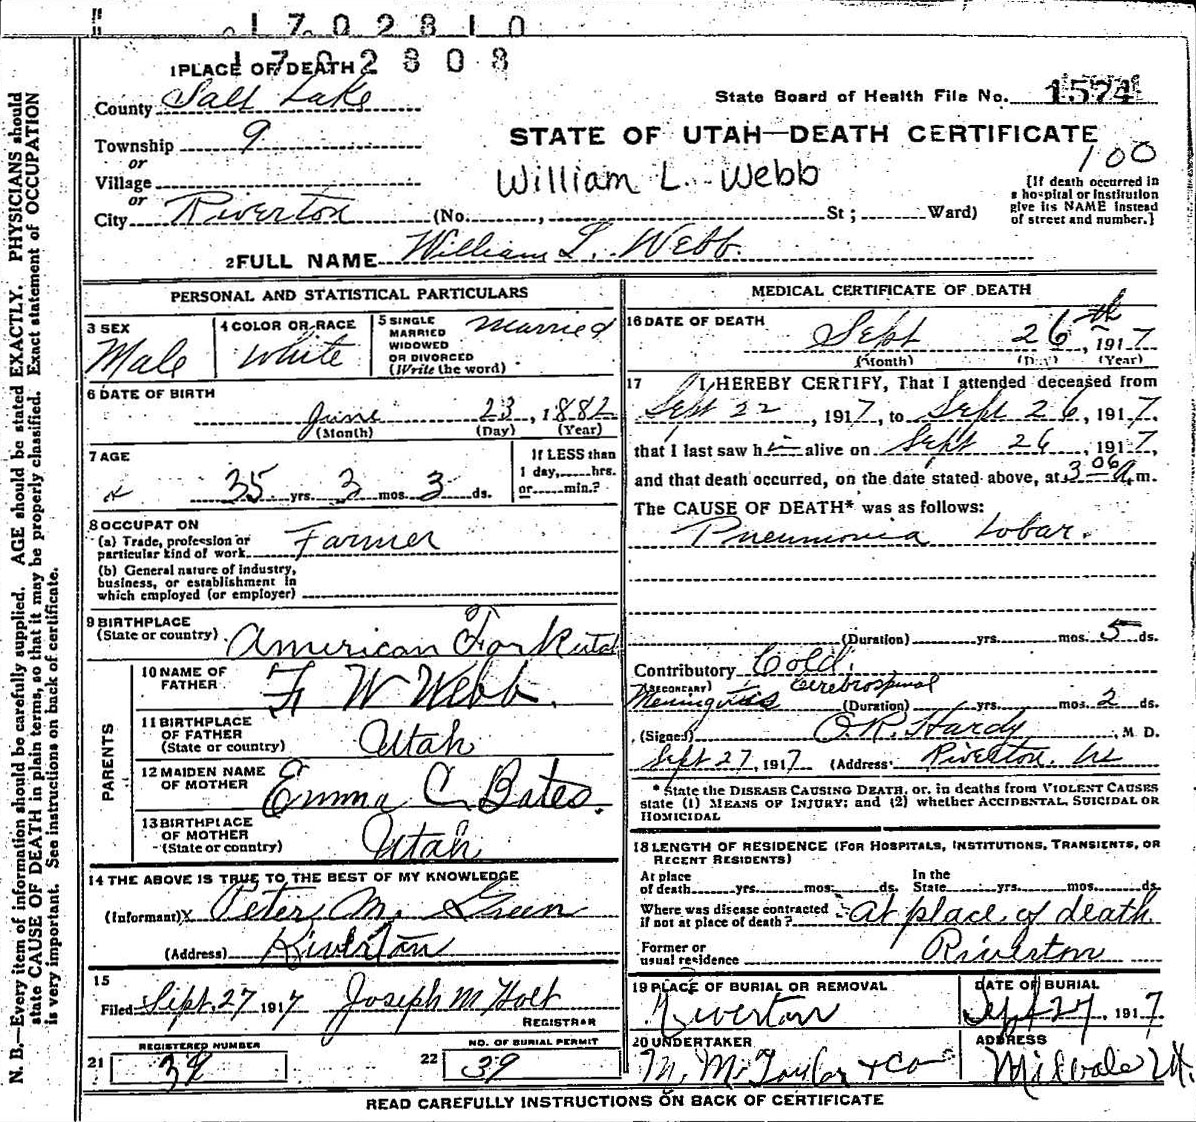 1702810
1702808
1 PLACE OF DEATH
County Salt Lake
State Board of Health File No. 1574
Township 9
STATE OF UTAH—DEATH CERTIFICATE
or
Village
William L. Webb
100
[If death occurred in a hospital or institution give its NAME instead of street and number.]
or
City Riverton (No. , St ; Ward)
2 FULL NAME William L. Webb.
PERSONAL AND STATISTICAL PARTICULARS
3 SEX Male
4 COLOR OR RACE White
5 SINGLE MARRIED WIDOWED OR DIVORCED (Write the word) Married
6 DATE OF BIRTH
June 23, 1882
(Month) (Day) (Year)
7 AGE
35 yrs. 3 mos. 3 ds.
If LESS than
1 day, hrs.
or min.?
8 OCCUPATION
(a) Trade, profession or
particular kind of work Farmer
(b) General nature of industry,
business, or establishment in
which employed (or employer)
9 BIRTHPLACE
(State or country) American Fork Utah
PARENTS
10 NAME OF FATHER F W Webb.
11 BIRTHPLACE OF FATHER (State or country) Utah
12 MAIDEN NAME OF MOTHER Emma C. Bates.
13 BIRTHPLACE OF MOTHER (State or country) Utah
14 THE ABOVE IS TRUE TO THE BEST OF MY KNOWLEDGE
(Informant) X Peter M. Green
(Address) Riverton
15
Filed Sept. 27 1917 Joseph M Holt
REGISTRAR
REGISTERED NUMBER
21
NO. OF BURIAL PERMIT
22 39
MEDICAL CERTIFICATE OF DEATH
16 DATE OF DEATH
Sept 26th, 1917
(Month) (Day) (Year)
17 I HEREBY CERTIFY, That I attended deceased from
Sept 22, 1917, to Sept 26, 1917,
that I last saw him alive on Sept 26, 1917,
and that death occurred, on the date stated above, at 3 06 a m.
The CAUSE OF DEATH* was as follows:
Pneumonia Lobar.
(Duration) yrs. mos. 5 ds.
Contributory Cold.
(SECONDARY) Cerebrospinal
Meningitis (Duration) yrs. mos. 2 ds.
(Signed) O. R. Hardy, M. D.
Sept 27, 1917 (Address) Riverton, Ut
* State the DISEASE CAUSING DEATH, or, in deaths from VIOLENT CAUSES
state (1) MEANS OF INJURY; and (2) whether ACCIDENTAL, SUICIDAL OR
HOMICIDAL
18 LENGTH OF RESIDENCE (FOR HOSPITALS, INSTITUTIONS, TRANSIENTS, OR
RECENT RESIDENTS)
At place In the
of death yrs. mos. ds. State yrs. mos. ds.
Where was disease contracted
if not at place of death? At place of death
Former or
usual residence Riverton
19 PLACE OF BURIAL OR REMOVAL Riverton
DATE OF BURIAL Sept 27, 1917
20 UNDERTAKER M. M. Taylor & Co
ADDRESS Midvale Ut.
READ CAREFULLY INSTRUCTIONS ON BACK OF CERTIFICATE
N. B.—Every item of information should be carefully supplied. AGE should be stated EXACTLY. PHYSICIANS should
state CAUSE OF DEATH in plain terms, so that it may be properly classified. Exact statement of OCCUPATION
is very important. See instructions on back of certificate.